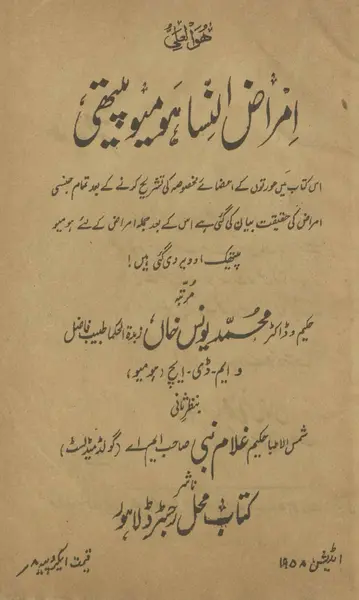 ہوالعلی
امراض النسا ہومیوپیتھی
اس کتاب میں عورتوں کے اعضائے مخصوصہ کی تشریح کرنے کے بعد تمام جنسی
امراض کی حقیقت بیان کی گئی ہے اس کے بعد جملہ امراض کے لئے ہومیو
پیتھک ادویہ دی گئی ہیں!
مرتبہ
حکیم و ڈاکٹر محمد یونس خاں زبدۃ الحکما طبیب فاضل
و ایم۔ڈی۔ایچ (ہومیو)
بنظرثانی
شمس الاطبا حکیم غلام نبی صاحب ایم اے (گولڈ میڈلسٹ)
ناشر
کتاب محل رجسٹرڈ لاہور
اڈیشن ۱۹۵۸
قیمت ایکروپیہ ۸؍